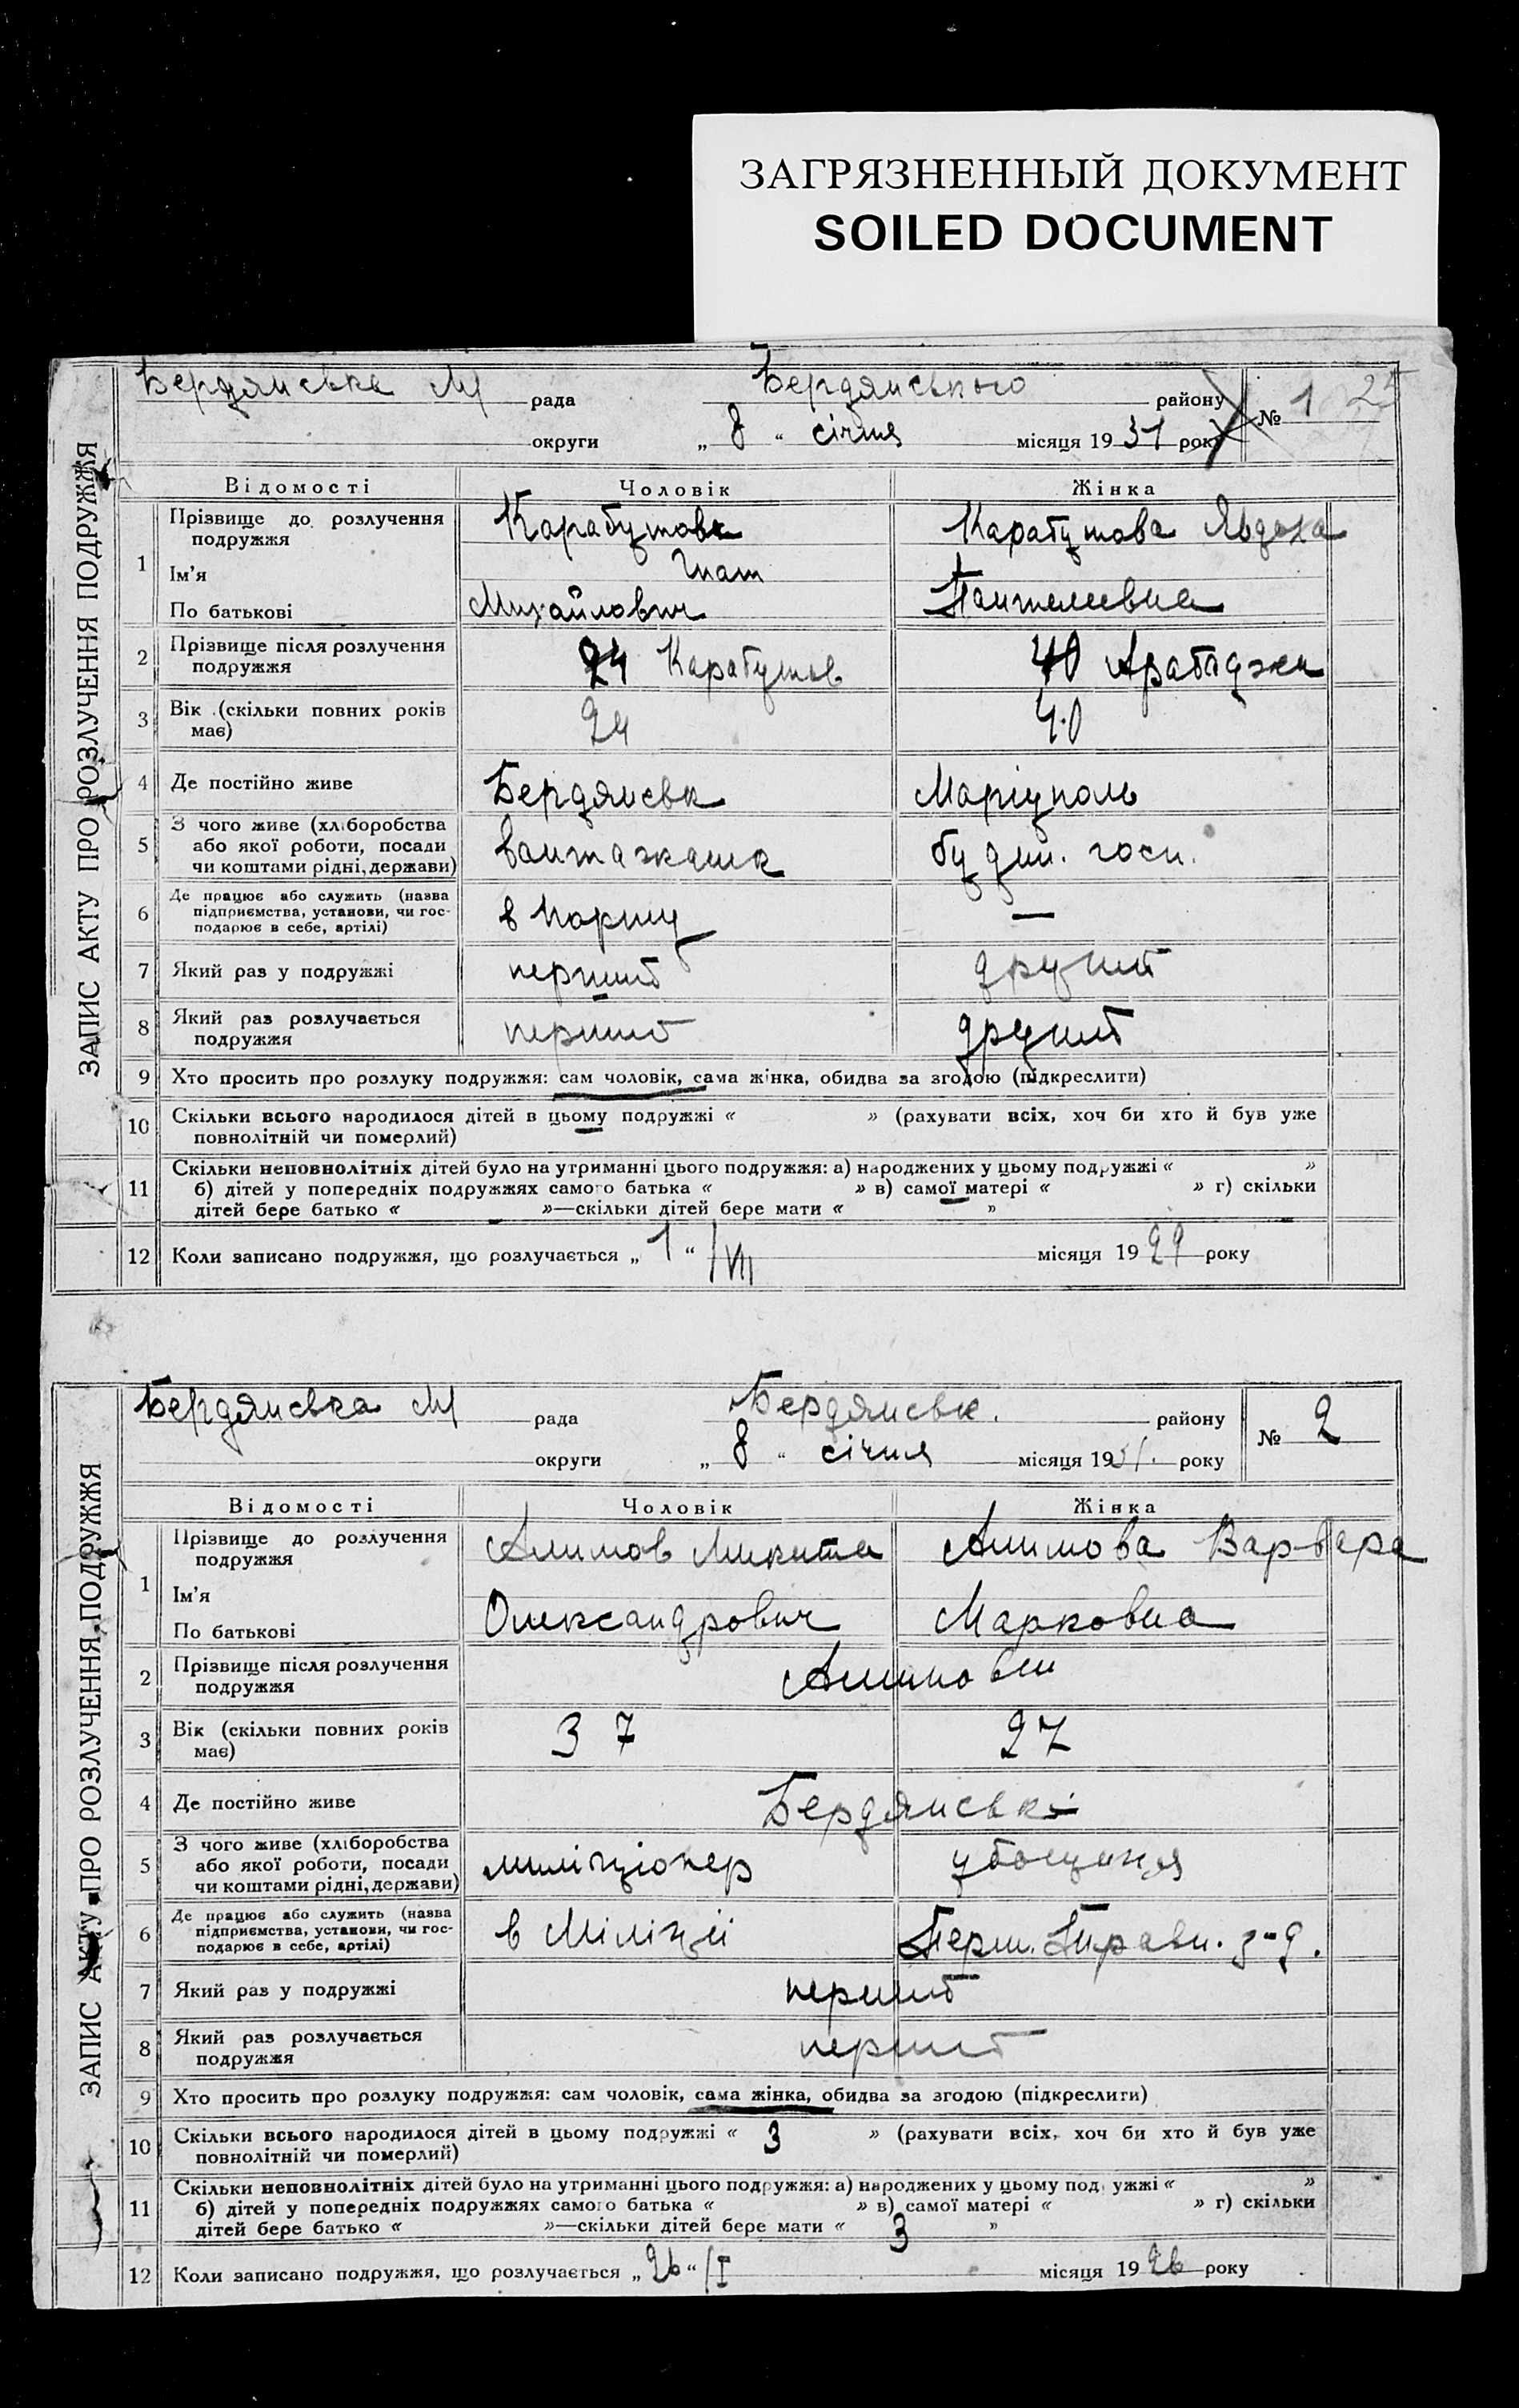 ЗАГРЯЗНЕННЫЙ ДОКУМЕНТ
SOILED DOCUMENT
ЗАПИС АКТУ ПРО РОЗЛУЧЕННЯ ПОДРУЖЖЯ
Бердянська М рада Бердянського району № 1 25
округи „ 8 “ січня місяця 1931 року
Відомості Чоловік Жінка
1 Прізвище до розлучення подружжя Карабутов Карабутова Явдоха
Ім'я Гнат
По батькові Михайлович Пантелеевна
2 Прізвище після розлучення подружжя 24 Карабутов 40 Арабаджи
3 Вік (скільки повних років має) 24 40
4 Де постійно живе Бердянськ Маріуполь
5 З чого живе (хліборобства або якої роботи, посади чи коштами рідні, держави) вантажник будин. госп.
6 Де працює або служить (назва підприємства, установи, чи господарює в себе, артілі) в порту —
7 Який раз у подружжі перший другий
8 Який раз розлучається подружжя перший другий
9 Хто просить про розлуку подружжя: сам чоловік, сама жінка, обидва за згодою (підкреслити)
10 Скільки всього народилося дітей в цьому подружжі « » (рахувати всіх, хоч би хто й був уже
повнолітній чи померлий)
11 Скільки неповнолітніх дітей було на утриманні цього подружжя: а) народжених у цьому подружжі « »
б) дітей у попередніх подружжях самого батька « » в) самої матері « » г) скільки
дітей бере батько « »—скільки дітей бере мати « »
12 Коли записано подружжя, що розлучається „ 1 “ /VII місяця 1929 року
ЗАПИС АКТУ ПРО РОЗЛУЧЕННЯ ПОДРУЖЖЯ
Бердянська М рада Бердянськ. району № 2
округи „ 8 “ січня місяця 1931. року
Відомості Чоловік Жінка
1 Прізвище до розлучення подружжя Алимов Микита Алимова Варвара
Ім'я
По батькові Олександрович Марковна
2 Прізвище після розлучення подружжя Алимови
3 Вік (скільки повних років має) 37 27
4 Де постійно живе Бердянськ
5 З чого живе (хліборобства або якої роботи, посади чи коштами рідні, держави) міліціонер
6 Де працює або служить (назва підприємства, установи, чи господарює в себе, артілі) в Міліції
7 Який раз у подружжі перший
8 Який раз розлучається подружжя перший
9 Хто просить про розлуку подружжя: сам чоловік, сама жінка, обидва за згодою (підкреслити)
10 Скільки всього народилося дітей в цьому подружжі « 3 » (рахувати всіх, хоч би хто й був уже
повнолітній чи померлий)
11 Скільки неповнолітніх дітей було на утриманні цього подружжя: а) народжених у цьому подружжі « »
б) дітей у попередніх подружжях самого батька « » в) самої матері « » г) скільки
дітей бере батько « »—скільки дітей бере мати « 3 »
12 Коли записано подружжя, що розлучається „ 26 “ /I місяця 1926 року